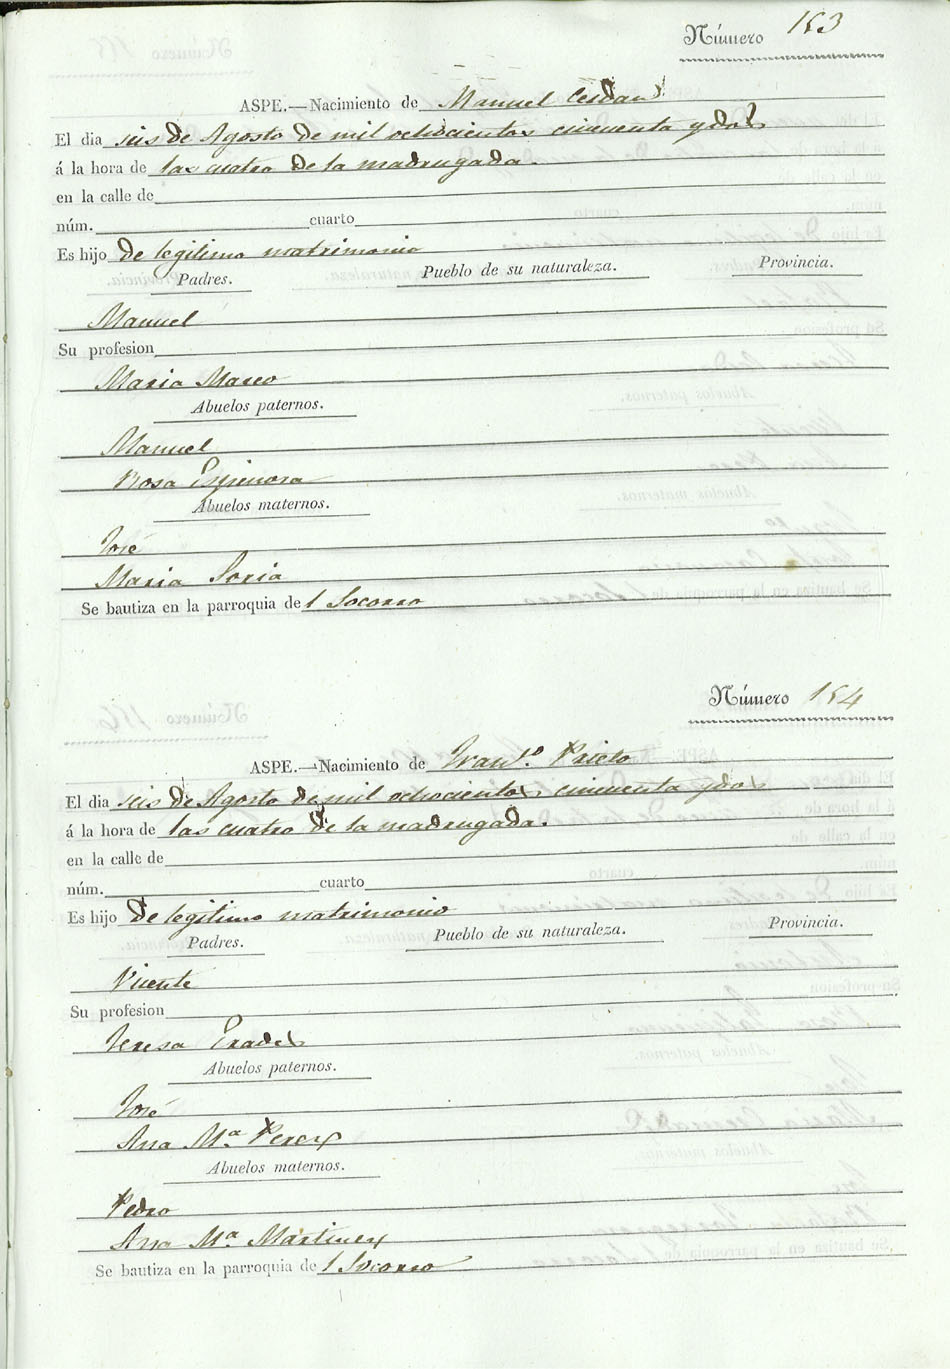 Número 153
ASPE.—Nacimiento de Manuel Cerdan
El dia seis de Agosto de mil ochocientos cincuenta y dos
á la hora de las cuatro de la madrugada.
en la calle de
núm. cuarto
Es hijo de legitimo matrimonio
Padres. Pueblo de su naturaleza. Provincia.
Manuel
Su profesion
Maria Marco
Abuelos paternos.
Manuel
Rosa Espinosa
Abuelos maternos.
José
Maria Soria
Se bautiza en la parroquia de l Socorro
Número 154
ASPE.—Nacimiento de Franco. Prieto
El dia seis de Agosto de mil ochocientos cincuenta y dos
á la hora de las cuatro de la madrugada.
en la calle de
núm. cuarto
Es hijo de legitimo matrimonio
Padres. Pueblo de su naturaleza. Provincia.
Vicente
Su profesion
Teresa Prades
Abuelos paternos.
José
Ana Ma Perez
Abuelos maternos.
Pedro
Ana Ma Martinez
Se bautiza en la parroquia de l Socorro